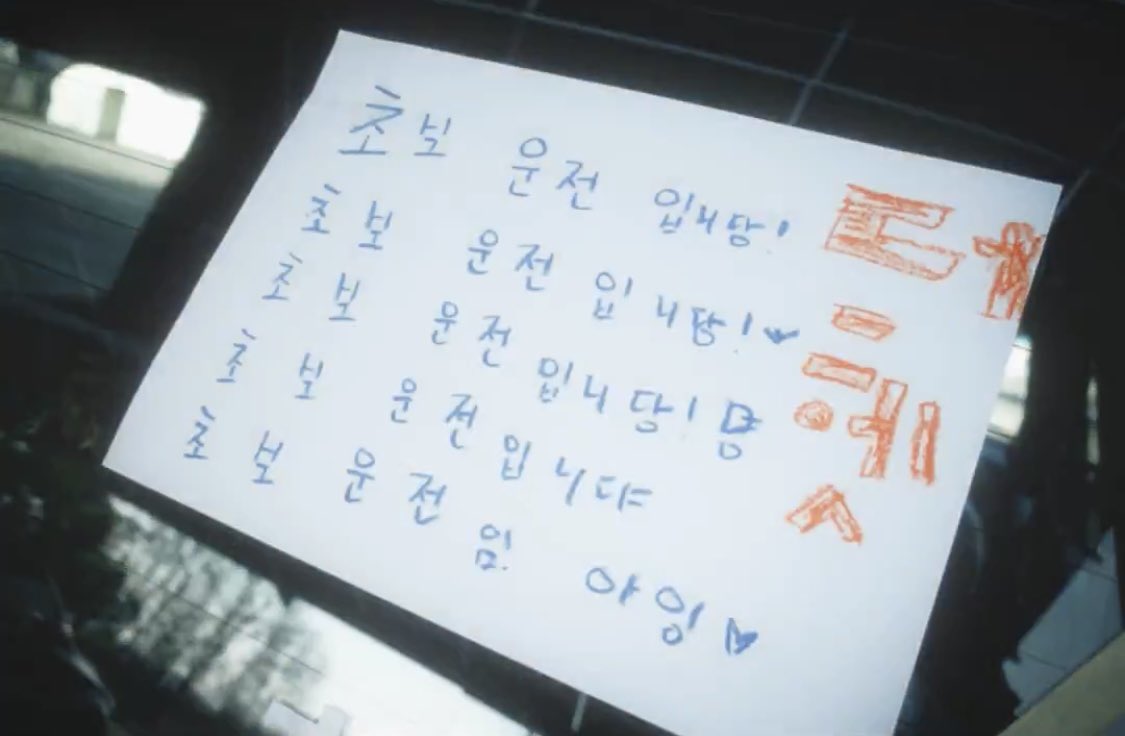 초보 운전 입니당!
초보 운전 입니당!♥
초보 운전 입니당!
초보 운전 입니댜
초보 운전 임. 아잉♥